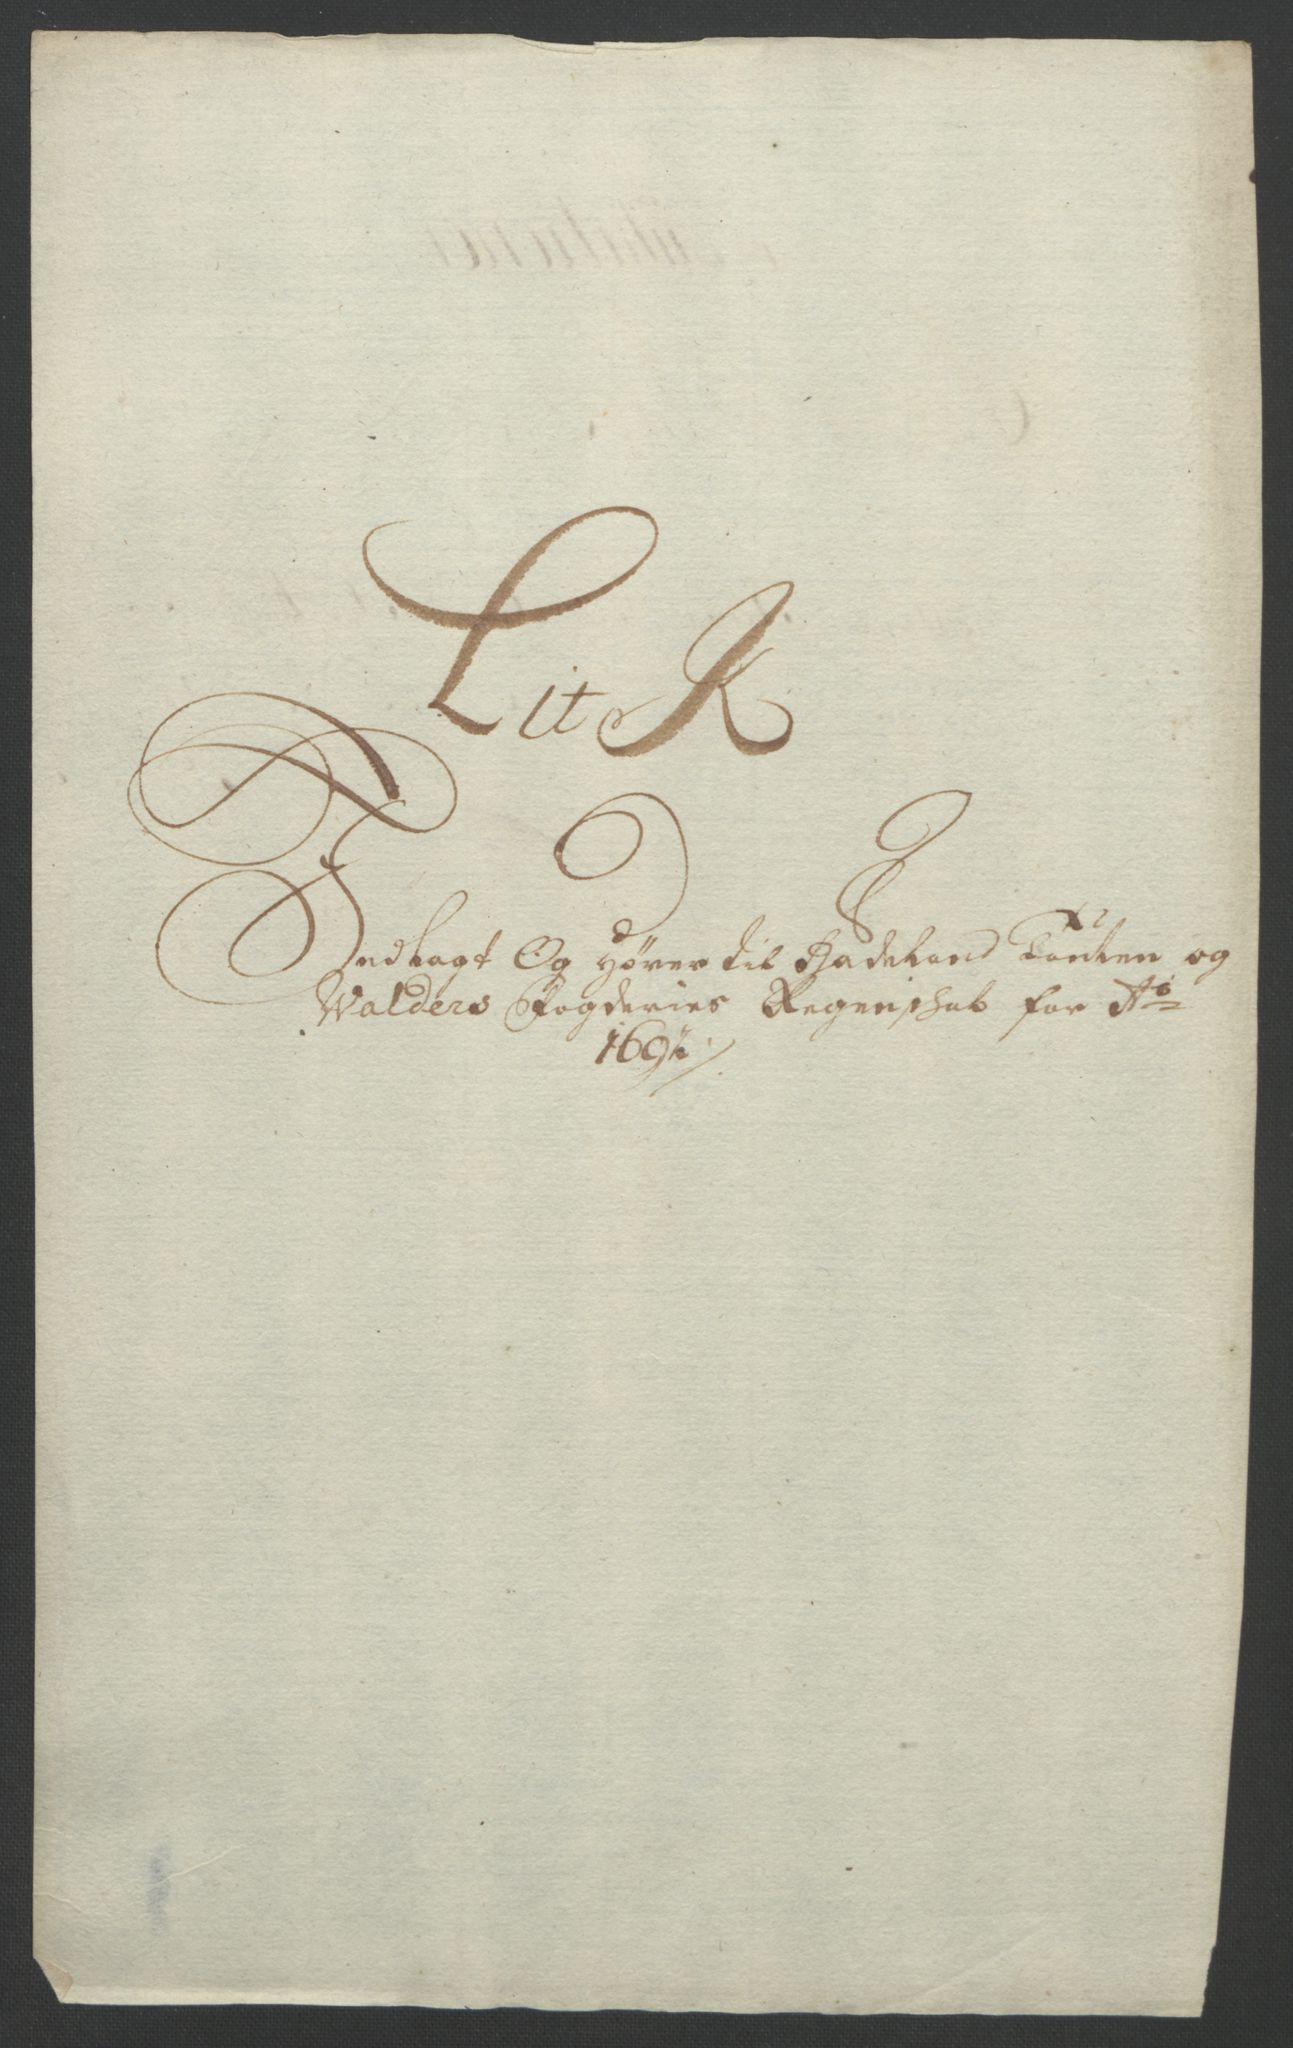 Lit K
Indlagt Og Hører til Hadeland Toten og
Walders Fogderies Regenschab for Ao
1692